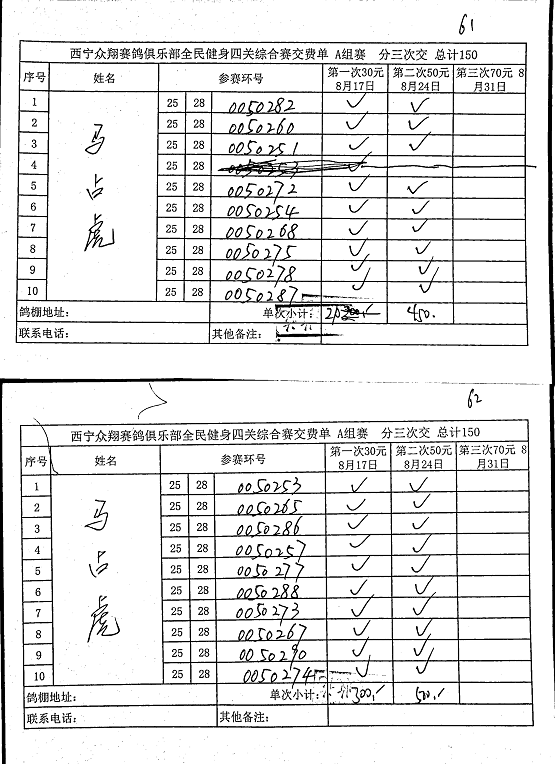 61
西宁众翔赛鸽俱乐部全民健身四关综合赛交费单 A组赛 分三次交 总计150
序号 姓名 参赛环号 第一次30元 8月17日 第二次50元 8月24日 第三次70元 8月31日
1 25 28 0050282 ✓ ✓
2 25 28 0050260 ✓ ✓
3 马 25 28 0050251 ✓ ✓
4 25 28 0050253 ✓
5 占 25 28 0050272 ✓ ✓
6 25 28 0050254 ✓ ✓
7 虎 25 28 0050268 ✓ ✓
8 25 28 0050275 ✓ ✓
9 25 28 0050278 ✓ ✓
10 25 28 0050287 ✓ ✓
鸽棚地址: 单次小计: 450.
联系电话: 其他备注:
62
西宁众翔赛鸽俱乐部全民健身四关综合赛交费单 A组赛 分三次交 总计150
序号 姓名 参赛环号 第一次30元 8月17日 第二次50元 8月24日 第三次70元 8月31日
1 25 28 0050253 ✓ ✓
2 马 25 28 0050265 ✓ ✓
3 25 28 0050286 ✓ ✓
4 25 28 0050257 ✓ ✓
5 占 25 28 0050277 ✓ ✓
6 25 28 0050288 ✓ ✓
7 虎 25 28 0050273 ✓ ✓
8 25 28 0050267 ✓ ✓
9 25 28 0050290 ✓ ✓
10 25 28 0050274 ✓ ✓
鸽棚地址: 单次小计: 300.- 500.-
联系电话: 其他备注: